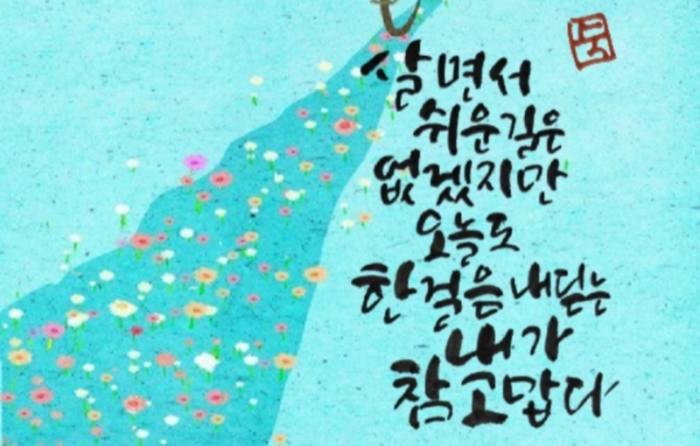 살면서
쉬운길은
없겠지만
오늘도
한걸음 내딛는
내가
참 고맙다